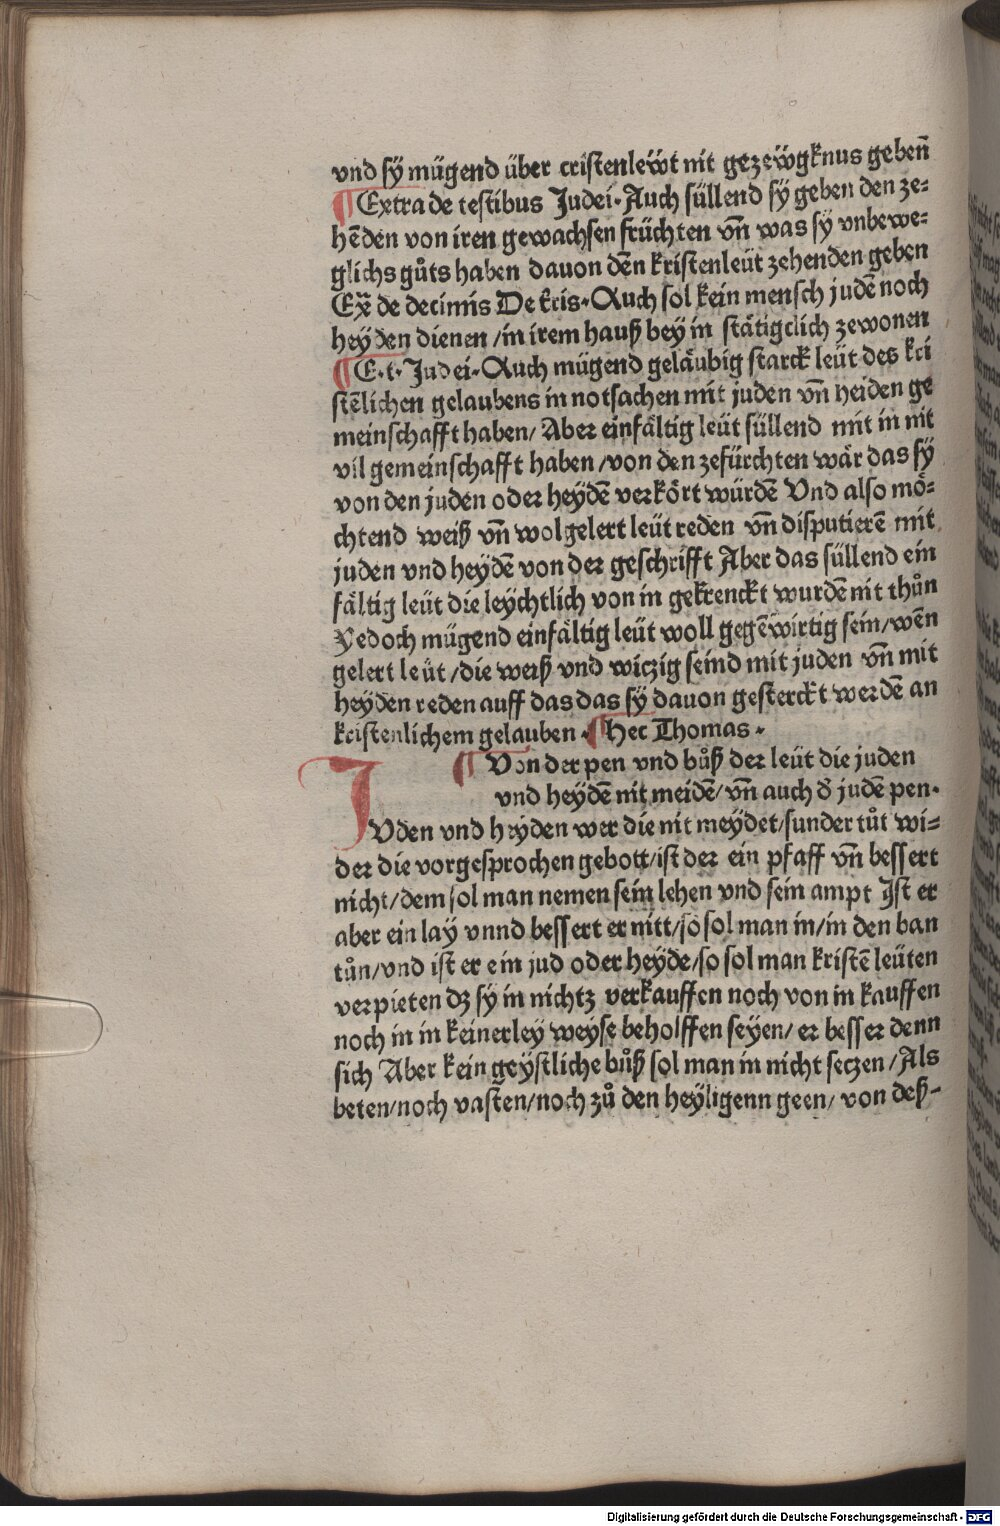 vnd sÿ mügend über cristenlewt nit gezewgknus gebeñ
¶ Extra de testibus Judei. Auch süllend sÿ geben den ze⸗
hēden von iren gewachsen früchten vñ was sÿ vnbewe⸗
glichs gůts haben dauon dēn kristenleüt zehenden geben
Ex̄ de decimis De tris. Auch sol kein mensch judēn noch
heyden dienen /in irem hauß bey in stätigclich zewonen
¶ E. t. Judei. Auch mügend geläubig starck leüt des kri
stēlichen gelaubens in notsachen mit juden vñ heiden ge
meinschafft haben/ Aber einfältig leüt süllend mit in nit
vil gemeinschafft haben /von den zefürchten wär das sÿ
von den juden oder heÿdē verkört würdē Vnd also mö⸗
chtend weiß vñ wolgelert leüt reden vñ disputierē mit
juden vnd heÿdē von der geschrifft Aber das süllend ein
fältig leüt die leychtlich von in gekrenckt wurdē nit thůn
Yedoch mügend einfältig leüt woll gegēwirtig sein/wēn
gelert leüt /die weiß vnd wiczig seind mit juden vñ mit
heyden reden auff das das sÿ dauon gesterckt werdē an
kristenlichem gelauben. ¶ Hec Thomas.
¶ Von der pen vnd bůß der leüt die juden
vnd heydē nit meidē/ vñ auch đ judē pen.
JVden vnd heyden wer die nit meydet/sunder tůt wi⸗
der die vorgesprochen gebott/ist der ein pfaff vñ bessert
nicht/dem sol man nemen sein lehen vnd sein ampt Jst er
aber ein lay vnnd bessert er nitt/so sol man in/in den ban
tůn/vnd ist er ein jud oder heyde/so sol man kristē leüten
verpieten dz sÿ in nichtz verkauffen noch von in kauffen
noch in in keinerley weyse beholffen seyen/ er besser denn
sich Aber kein geystliche bůß sol man in nicht seczen /Als
beten/noch vasten/noch zů den heyligenn geen/ von deß⸗
Digitalisierung gefördert durch die Deutsche Forschungsgemeinschaft - DFG